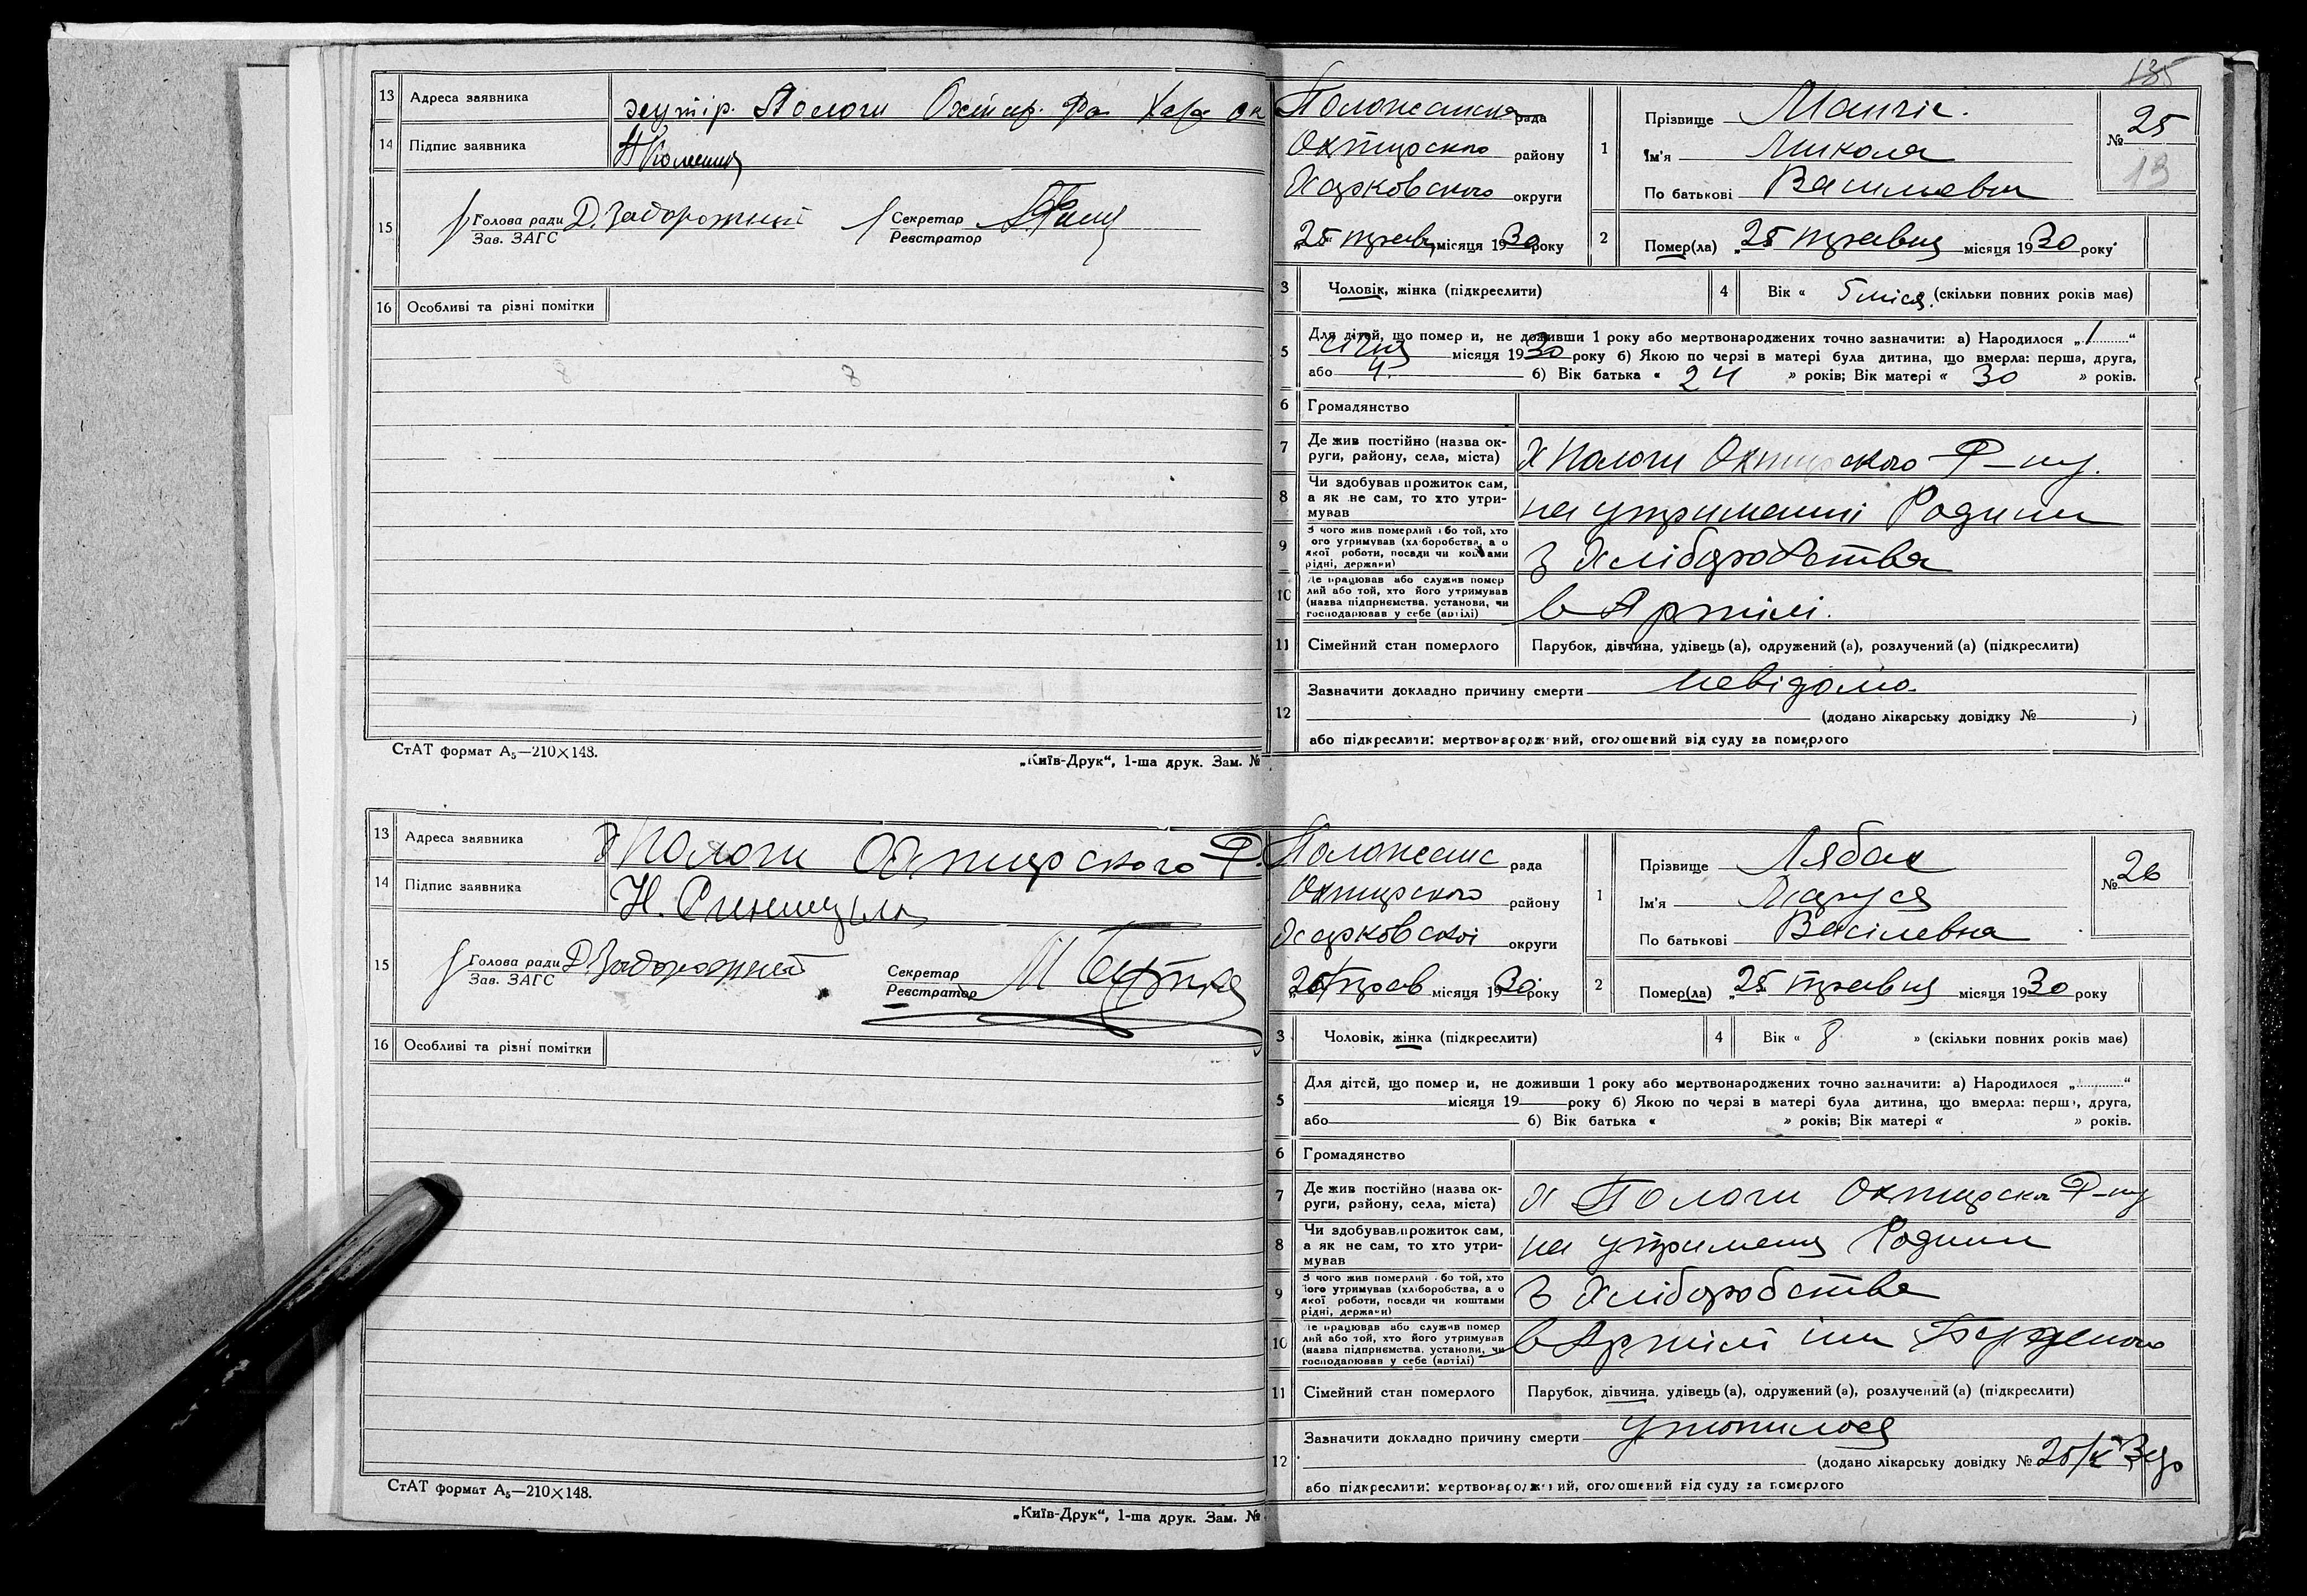 13 Адреса заявника хутір. Пологи Охтир. Ра Хар ок
14 Підпис заявника
15 Голова ради Д. Задорожний Секретар
Зав. ЗАГС Реєстратор
16 Особливі та різні помітки
СтАТ формат А5—210×148.
„Київ-Друк“, 1-ша друк. Зам. №
135
рада
Охтирского району
Харковского округи
„25 травня місяця 1930 року
1 Прізвище
Ім'я Микола
По батькові Васильевич
№ 25
13
2 Помер(ла) „25 травня місяця 1930 року
3 Чоловік, жінка (підкреслити)
4 Вік « 5 міся. (скільки повних років має)
5 Для дітей, що померли, не доживши 1 року або мертвонароджених точно зазначити: а) Народилося „1“
січня місяця 1930 року б) Якою по черзі в матері була дитина, що вмерла: перша, друга,
або 4. б) Вік батька « 24 » років; Вік матері « 30 » років.
6 Громадянство
7 Де жив постійно (назва ок-
руги, району, села, міста) Х Пологи Охтирского Р-ну.
8 Чи здобував прожиток сам,
а як не сам, то хто утри-
мував на утриманні Родини
9 З чого жив померлий або той, хто
його утримував (хліборобства, з
якої роботи, посади чи коштами
рідні, держави) З Хліборобства
10 Де працював або служив помер
лий або той, хто його утримував
(назва підприємства, установи, чи
господарював у себе (артілі) в Артілі.
11 Сімейний стан померлого Парубок, дівчина, удівець (а), одружений (а), розлучений (а) (підкреслити)
12 Зазначити докладно причину смерти невідома.
(додано лікарську довідку № )
або підкреслити: мертвонароджений, оголошений від суду за померлого
13 Адреса заявника Х Пологи Охтирского Р.
14 Підпис заявника
15 Голова ради Д. Задорожний Секретар
Зав. ЗАГС Реєстратор
16 Особливі та різні помітки
СтАТ формат А5—210×148.
„Київ-Друк“, 1-ша друк. Зам. №
рада
Охтирского району
Харковскої округи
трав місяця 1930 року
1 Прізвище Лябах
Ім'я Маруся
По батькові Васілевна
№ 26
2 Помер(ла) „25 травня місяця 1930 року
3 Чоловік, жінка (підкреслити)
4 Вік « 8 » (скільки повних років має)
5 Для дітей, що померли, не доживши 1 року або мертвонароджених точно зазначити: а) Народилося „ “
місяця 19 року б) Якою по черзі в матері була дитина, що вмерла: перша, друга,
або б) Вік батька « » років; Вік матері « » років.
6 Громадянство
7 Де жив постійно (назва ок-
руги, району, села, міста) Х Пологи Охтирска Р-ну
8 Чи здобував прожиток сам,
а як не сам, то хто утри-
мував на утриманя Родини
9 З чого жив померлий або той, хто
його утримував (хліборобства, з
якої роботи, посади чи коштами
рідні, держави) З Хліборобства
10 Де працював або служив помер
лий або той, хто його утримував
(назва підприємства, установи, чи
господарював у себе (артілі) в Артілі ім Буденого
11 Сімейний стан померлого Парубок, дівчина, удівець (а), одружений (а), розлучений (а) (підкреслити)
12 Зазначити докладно причину смерти утопилося
(додано лікарську довідку №
або підкреслити: мертвонароджений, оголошений від суду за померлого